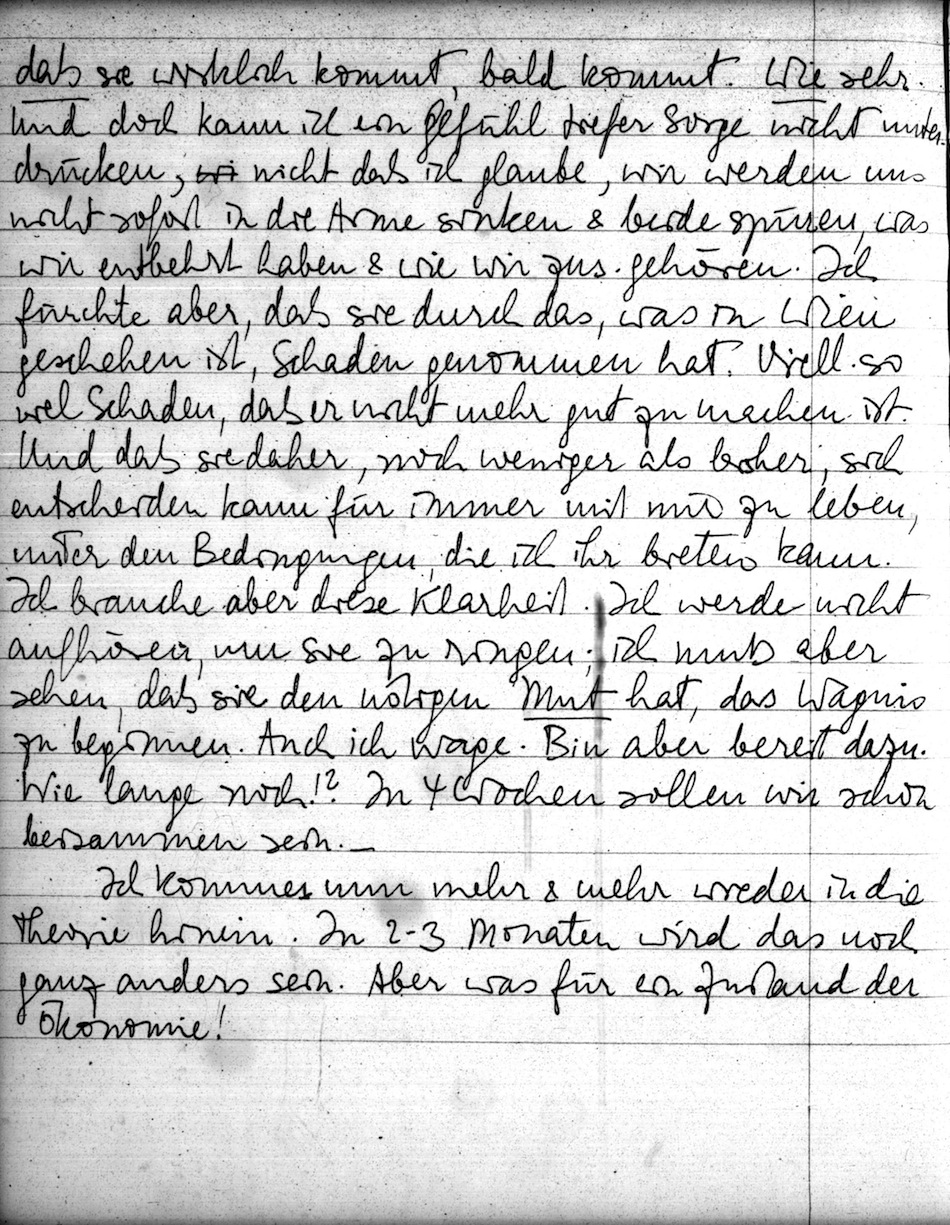 daß sie wirklich kommt, bald kommt. Wie sehr.
Und doch kann ich ein Gefühl tiefer Sorge nicht unter-
drücken; wi nicht daß ich glaube, wir werden uns
nicht sofort in die Arme sinken & beide spüren, was
wir entbehrt haben & wie wir zus. gehören. Ich
fürchte aber, daß sie durch das, was in Wien
geschehen ist, Schaden genommen hat. Viell. so
viel Schaden, daß er nicht mehr gut zu machen ist.
Und daß sie daher, noch weniger als bisher, sich
entscheiden kann für immer mit mir zu leben,
unter den Bedingungen, die ich ihr bieten kann.
Ich brauche aber diese Klarheit. Ich werde nicht
aufhören, um sie zu ringen; ich muß aber
sehen, daß sie den nötigen Mut hat, das Wagnis
zu beginnen. Auch ich wage. Bin aber bereit dazu.
Wie lange noch!? In 4 Wochen sollen wir schon
beisammen sein. —
Ich komme nun mehr & mehr wieder in die
Theorie hinein. In 2-3 Monaten wird das noch
ganz anders sein. Aber was für ein Zustand der
Ökonomie!